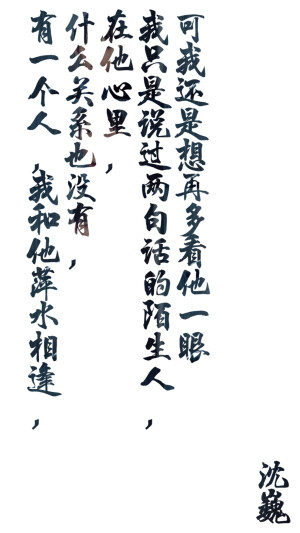 有一个人，我和他萍水相逢，
什么关系也没有，
在他心里，
我只是说过两句话的陌生人，
可我还是想再多看他一眼
沈巍